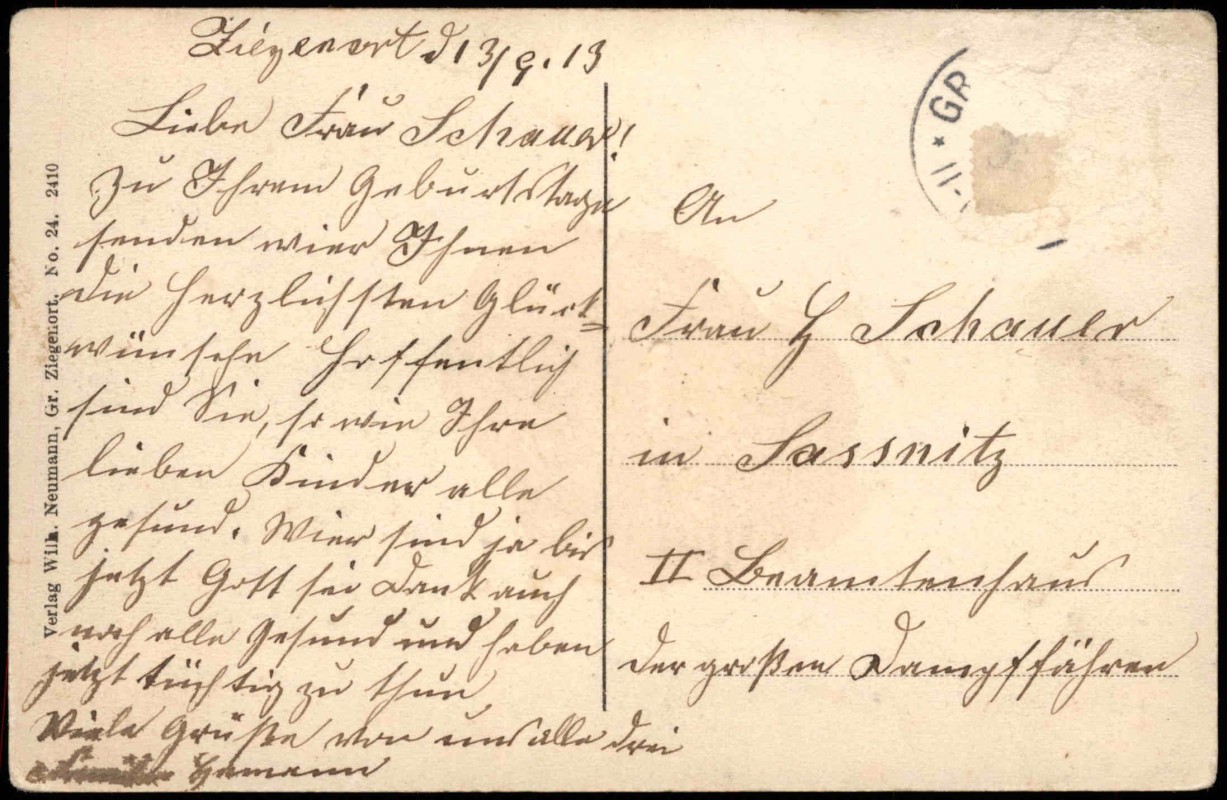 Ziegenort d 13/9.13
Liebe Frau Schauer!
Zu Ihrem Geburtstage
senden wier Ihnen
die herzlichsten Glück=
wünsche hoffentlich
sind Sie, so wie Ihre
lieben Kinder alle
gesund. Wier sind ja bis
jetzt Gott sei Dank auch
noch alle Gesund und haben
jetzt tüchtig zu thun
Viele Grüße von uns alle drei
Hamann
An
Frau H Schauer
in Sassnitz
II Beamtenhaus
der großen Dampffähren
Verlag Wilh. Neumann, Gr. Ziegenort. No. 24. 2410
* GR